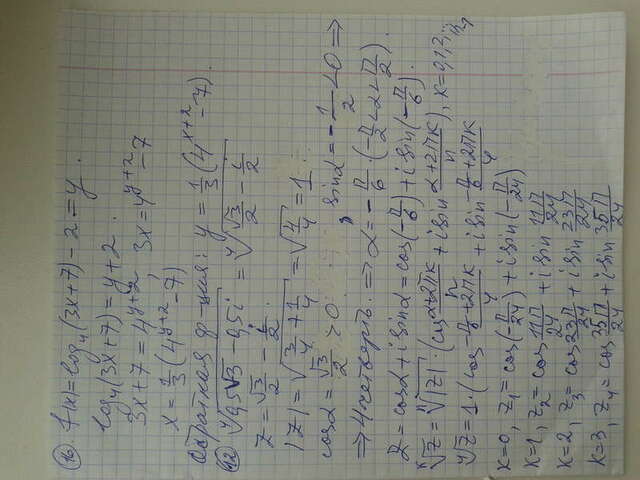 16. f(x)=log₄(3x+7)-2=y.
log₄(3x+7)=y+2.
3x+7=4^(y+2) 3x=4^(y+2)-7
x=1/3(4^(y+2)-7)
Обратная ф-ция: y=1/3(4^(x+2)-7).
12 ⁴√(0,5√3-0,5i) = ⁴√(√3/2 - i/2)
z=√3/2 - i/2.
|z|=√(3/4+1/4)=√(4/4)=1.
cosα=√3/2>0, sinα=-1/2<0 ⇒
⇒ 4 четверть. ⇒ α=-π/6 (-π/2<α<π/2).
z=cosα+isinα=cos(-π/6)+isin(-π/6)
ⁿ√z=ⁿ√|z|·(cos (α+2πk)/n + isin (α+2πk)/n), k=0,1,2,...
⁴√z=1·(cos (-π/6+2πk)/4 + isin (-π/6+2πk)/4
k=0, z₁=cos(-π/24)+isin(-π/24)
k=1, z₂=cos 11π/24+isin 11π/24
k=2, z₃=cos 23π/24+isin 23π/24
k=3, z₄=cos 35π/24+isin 35π/24